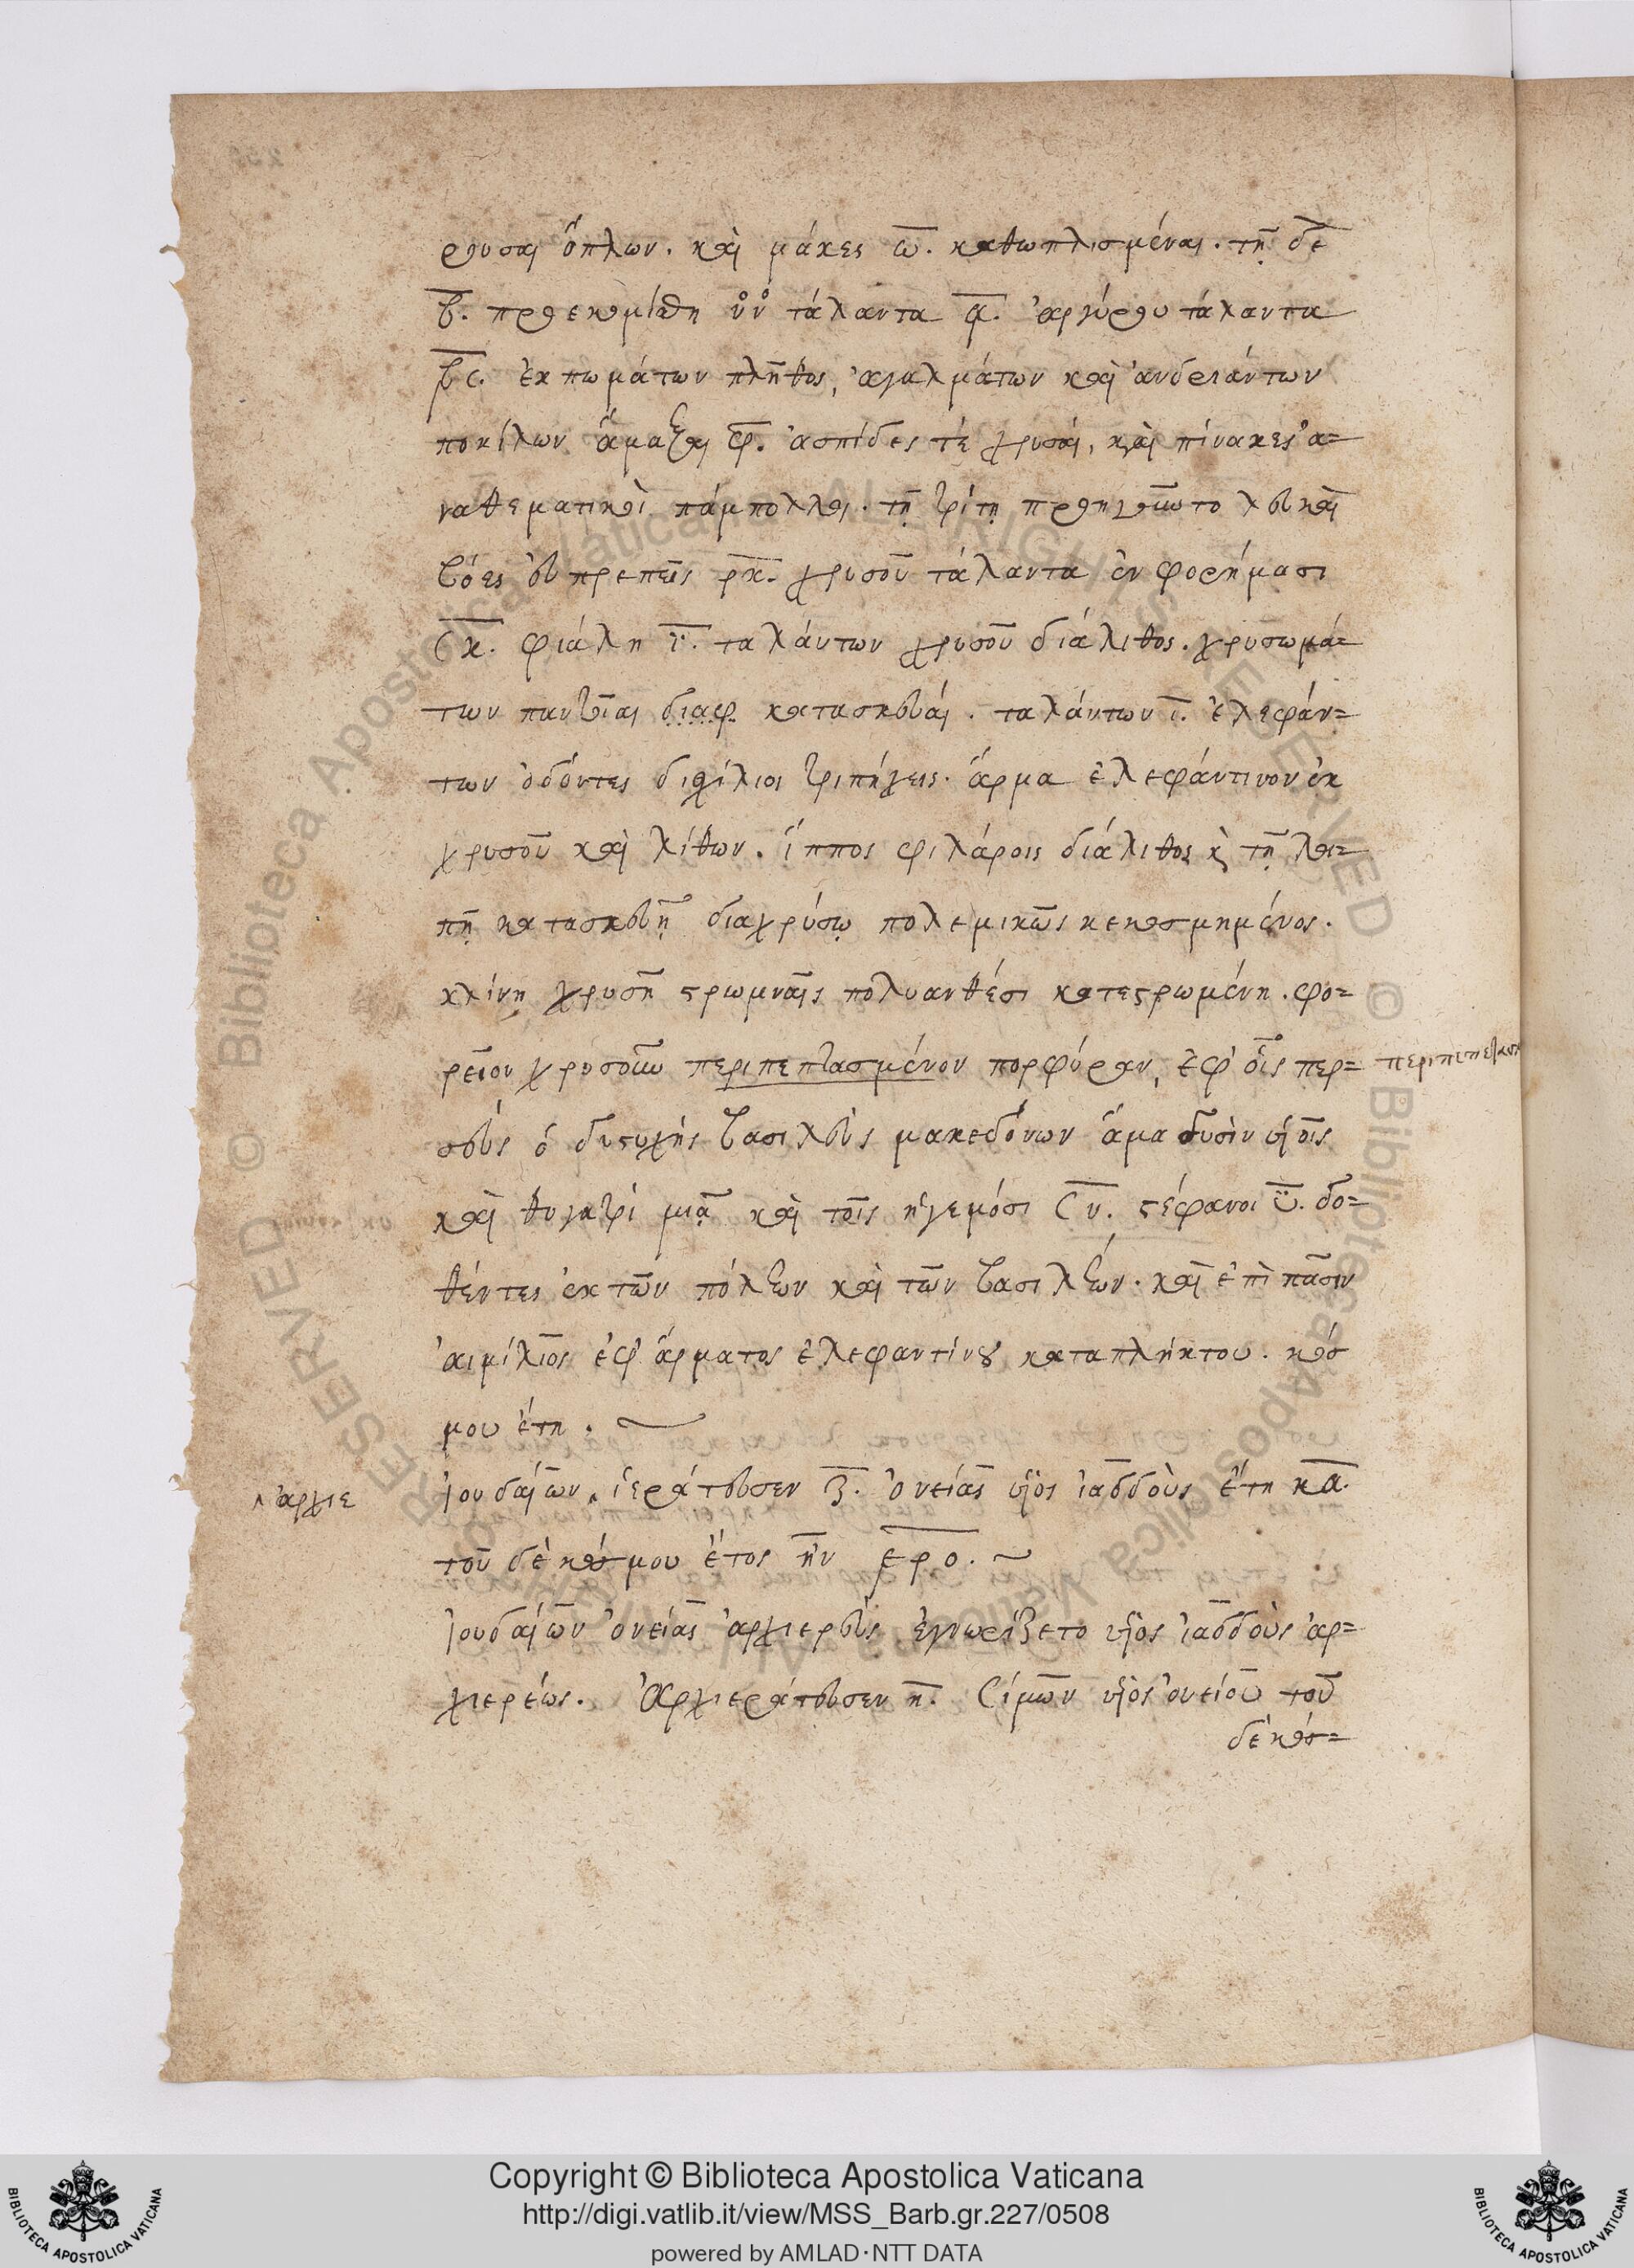 ρουσαι ὅπλων. καὶ μάκες ω̅. καθωπλισμέναι. τῇ δὲ
β̅. προεκομίσθη νο̅ν̅ο̅ τάλαντα α̅. ἀργύρου τάλαντα
͵β̅ς̅. ἐκπωμάτων πλῆθος, ἀγαλμάτων καὶ ἀνδριάντων
ποκίλων ἅμαξαι φ̅. ἀσπίδες τὲ χρυσαῖ, καὶ πίνακες ἀ=
ναθεματικοὶ πάμπολλοι. τῇ τρίτῃ προηγοῦντο λευκαὶ
βόες εὐπρεπεῖς ρ̅κ̅. χρυσοῦ τάλαντα ἐν φορήμασι
ς̅κ̅. φιάλη ι̅. ταλάντων χρυσοῦ διάλιθος. χρυσωμά=
των παντοῖαι διαφ κατασκευαί. ταλάντων ι̅. ἐλεφάν=
των ὀδόντες διχίλιοι τριπήχεις. ἅρμα ἐλεφάντινον ἐκ
χρυσοῦ καὶ λίθων. ἵππος φιλάροις διάλιθος κ̀ τῇ λοι=
πῇ κατασκευῇ διαχρύσῳ πολεμικῶς κεκοσμημένος.
κλίνη χρυσῆ στρωμναῖς πολυανθέσι κατεστρωμένη. φο=
ρεῖον χρυσοῦν περιπεπτασμένον πορφύραν, ἐφ' οἷς περ=
περιπεπετασ
σεὺς ὁ δυστυχὴς βασιλεὺς μακεδόνων ἅμα δυσὶν υἱοῖς
καὶ θυγατρὶ μιᾷ καὶ τοῖς ἡγεμόσι ς̅ν̅. στέφανοι υ̅. δο=
θέντες ἐκ τῶν πόλεων καὶ τῶν βασιλέων. καὶ ἐπὶ πᾶσιν
αἰμίλιος ἐφ' ἅρματος ἐλεφαντίνου καταπλήκτου. κόσ
μου ἔτη.
ἀρχιε
Ἰουδαίων ἱεράτευσεν ζ̅. ὀνείας υἱὸς ἰαδδοὺς ἔτη κ̅α̅.
τοῦ δὲ κόσμου ἔτος ἦν ͵ε̅ρ̅ο̅.
Ἰουδαίων ὀνείας ἀρχιερεὺς ἐγνωρίζετο υἱὸς ἰαδδοὺς ἀρ=
χιερέως. Ἀρχιεράτευσεν η̅. Σίμων υἱὸς ὀνείου τοῦ
δὲ κόσ=
Copyright © Biblioteca Apostolica Vaticana
http://digi.vatlib.it/view/MSS_Barb.gr.227/0508
powered by AMLAD·NTT DATA